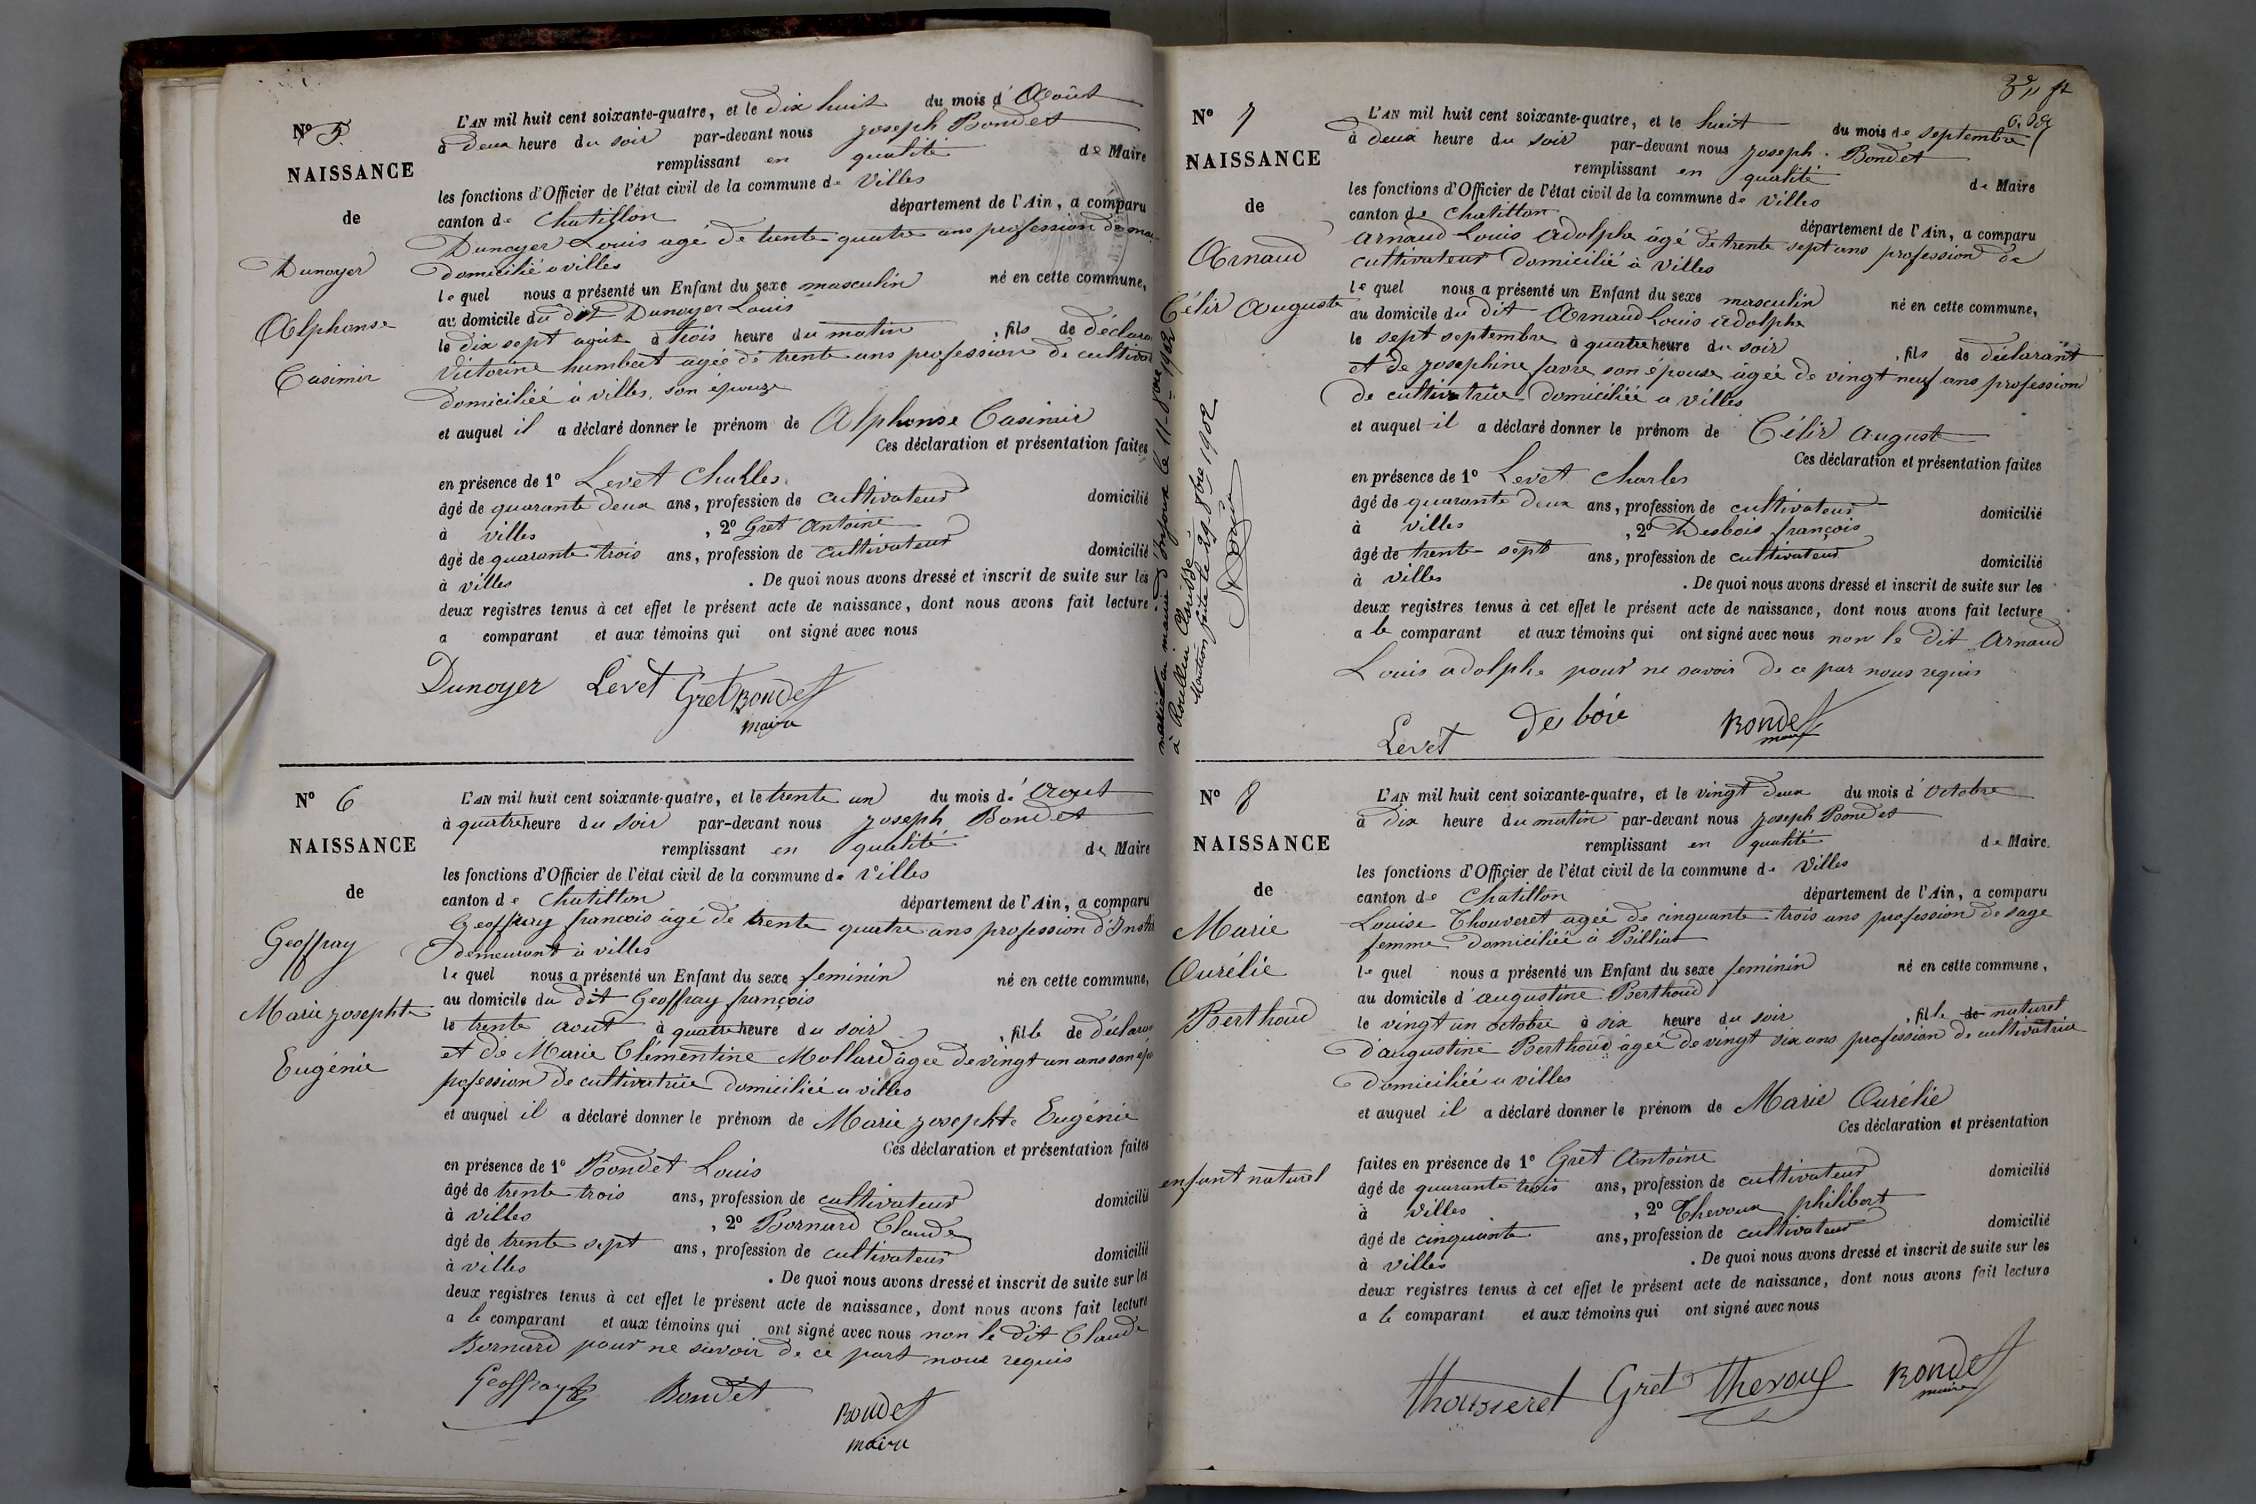 N° 5.
NAISSANCE
de
Dunoyer
Alphonse
Casimir
L'AN mil huit cent soixante-quatre, et le dix huit du mois d'Août
à deux heure du soir par-devant nous joseph Bondet
remplissant en qualité de Maire
les fonctions d'Officier de l'état civil de la commune de Villes
canton de Chatillon département de l'Ain, a comparu
Dunoyer Louis agé de trente quatre ans profession de
domicilié a villes
le quel nous a présenté un Enfant du sexe masculin né en cette commune,
au domicile du dit Dunoyer Louis
le dix sept août à trois heure du matin, fils de déclara
Victorine humbert agée de trente ans profession de cultivat
domiciliée à villes, son épouze
et auquel il a déclaré donner le prénom de Alphonse Casimir
Ces déclaration et présentation faites
en présence de 1° Levet Charles
âgé de quarante deux ans, profession de cultivateur domicilié
à villes, 2° Gret Antoine
âgé de quarante trois ans, profession de cultivateur domicilié
à villes. De quoi nous avons dressé et inscrit de suite sur les
deux registres tenus à cet effet le présent acte de naissance, dont nous avons fait lecture
a comparant et aux témoins qui ont signé avec nous
Dunoyer Levet Gret Bondet
maire
N° 6
NAISSANCE
de
Geoffray
Marie josephte
Eugénie
L'AN mil huit cent soixante-quatre, et le trente un du mois d'Aout
à quatre heure du soir par-devant nous joseph Bondet
remplissant en qualité de Maire
les fonctions d'Officier de l'état civil de la commune de villes
canton de Chatillon département de l'Ain, a comparu
Geoffray françois âgé de trente quatre ans profession d'Insti
demeurant à villes
le quel nous a présenté un Enfant du sexe feminin né en cette commune,
au domicile du dit Geoffray françois
le trente aout à quatre heure du soir, fille de déclara
et de Marie Clémentine Mollard agée de vingt un ans son
profession de cultivatrice domiciliée a villes
et auquel il a déclaré donner le prénom de Marie josephte Eugénie
Ces déclaration et présentation faites
en présence de 1° Bondet Louis
âgé de trente trois ans, profession de cultivateur domicilié
à villes, 2° Bornard Claude
âgé de trente sept ans, profession de cultivateur domicilié
à villes. De quoi nous avons dressé et inscrit de suite sur les
deux registres tenus à cet effet le présent acte de naissance, dont nous avons fait lecture
a le comparant et aux témoins qui ont signé avec nous non le dit Claude
Bornard pour ne savoir de ce part nous requis
Geoffray Bondet Bondet
maire
N° 7
NAISSANCE
de
Arnaud
Célir Auguste
le 11 - 8bre 1902
à Roullin Clarisse
Mention faite le 29 8bre 1902
L'AN mil huit cent soixante-quatre, et le huit du mois de septembre
à deux heure du soir par-devant nous joseph Bondet
remplissant en qualité de Maire
les fonctions d'Officier de l'état civil de la commune de villes
canton de Chatillon département de l'Ain, a comparu
Arnaud Louis Adolphe âgé de trente sept ans profession de
cultivateur domicilié à Villes
le quel nous a présenté un Enfant du sexe masculin né en cette commune,
au domicile du dit Arnaud Louis Adolphe
le sept septembre à quatre heure du soir, fils de déclarant
et de josephine favre son épouse agée de vingt neuf ans profession
de cultivatrice domiciliée a villes
et auquel il a déclaré donner le prénom de Célir August
Ces déclaration et présentation faites
en présence de 1° Levet Charles
âgé de quarante deux ans, profession de cultivateur domicilié
à villes, 2° Desbois françois
âgé de trente sept ans, profession de cultivateur domicilié
à villes. De quoi nous avons dressé et inscrit de suite sur les
deux registres tenus à cet effet le présent acte de naissance, dont nous avons fait lecture
a le comparant et aux témoins qui ont signé avec nous non le dit Arnaud
Louis adolphe pour ne savoir de ce par nous requis
Levet Desbois Bondet
maire
N° 8
NAISSANCE
de
Marie
Aurélie
Berthoud
enfant naturel
L'AN mil huit cent soixante-quatre, et le vingt deux du mois d'Octobre
à dix heure du matin par-devant nous joseph Bondet
remplissant en qualité de Maire.
les fonctions d'Officier de l'état civil de la commune de Villes
canton de Chatillon département de l'Ain, a comparu
Louise Thouveret agée de cinquante trois ans profession de sage
femme domiciliée à Billiat
le quel nous a présenté un Enfant du sexe feminin né en cette commune,
au domicile d'augustine Berthoud
le vingt un octobre à six heure du soir, fille de naturel
d'augustine Berthoud agée de vingt six ans profession de cultivatrice
domiciliée a villes
et auquel il a déclaré donner le prénom de Marie Aurélie
Ces déclaration et présentation
faites en présence de 1° Gret Antoine
âgé de quarante trois ans, profession de cultivateur domicilié
à villes, 2° Thevoux philibert
âgé de cinquante ans, profession de cultivateur domicilié
à villes. De quoi nous avons dressé et inscrit de suite sur les
deux registres tenus à cet effet le présent acte de naissance, dont nous avons fait lecture
a le comparant et aux témoins qui ont signé avec nous
Thouveret Gret Thevoux Bondet
maire